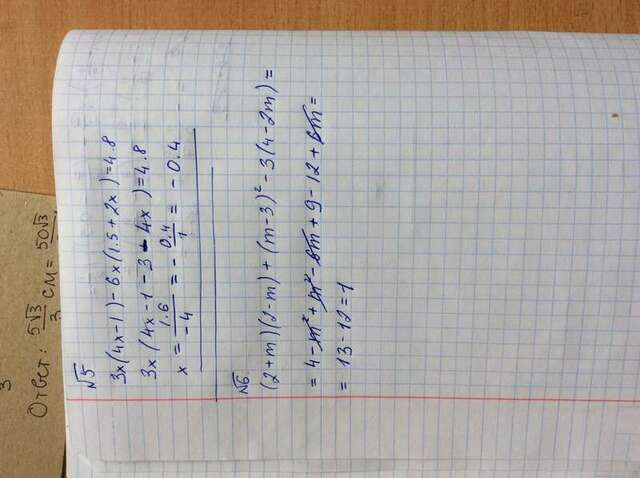 3
Ответ: 5√3/3 см = 50√3
√5
3x(4x-1)-6x(1.5+2x)=4.8
3x(4x-1-3-4x)=4.8
x = 1.6/-4 = - 0.4/1 = -0.4
√6
(2+m)(2-m)+(m-3)²-3(4-2m)=
= 4-m²+m²-6m+9-12+6m=
= 13-12=1